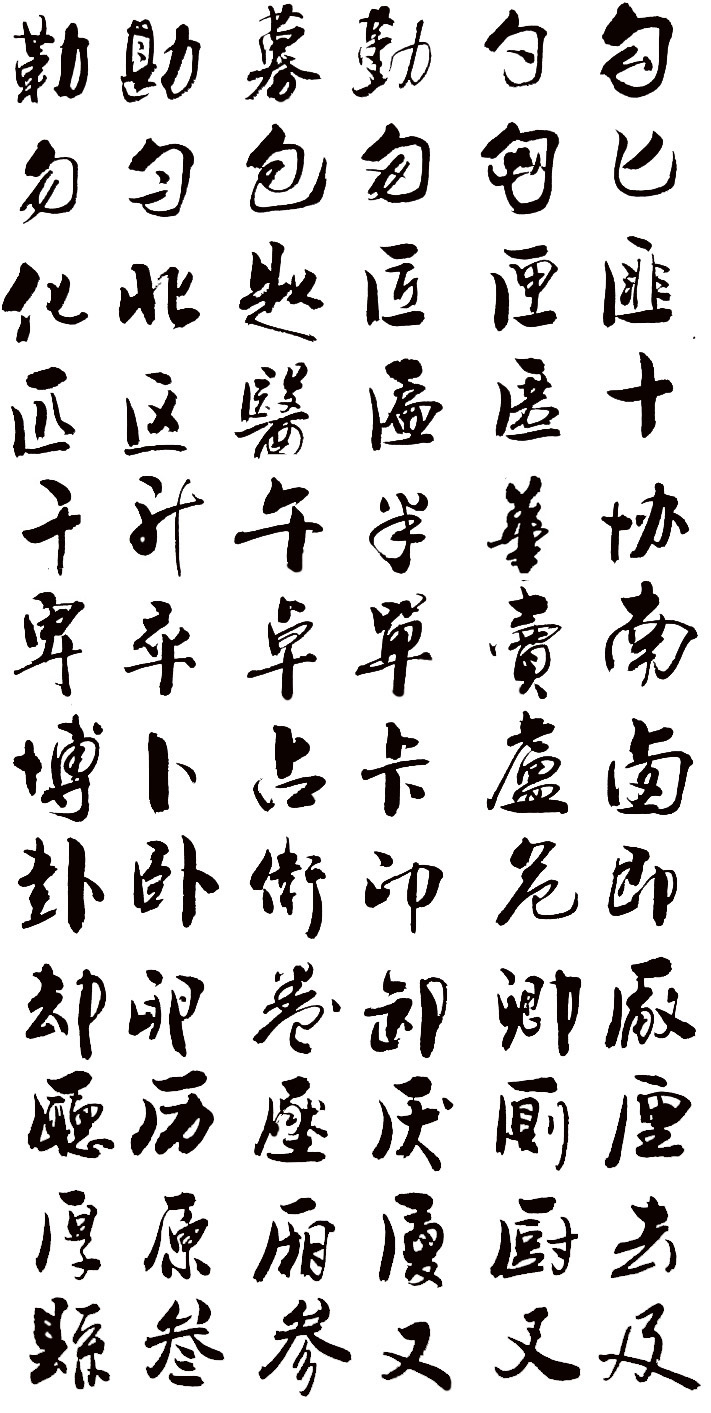 勒勘募勤勺勾
勿匀包匆匈匕
化北匙匠匣匪
匹区醫匾匿十
千升午半華协
卑卒卓單賣南
博卜占卡盧鹵
卦卧衛印危即
却卵卷卸卿厰
廳历壓厌厠厘
厚原厢厦厨去
縣叁参又叉及